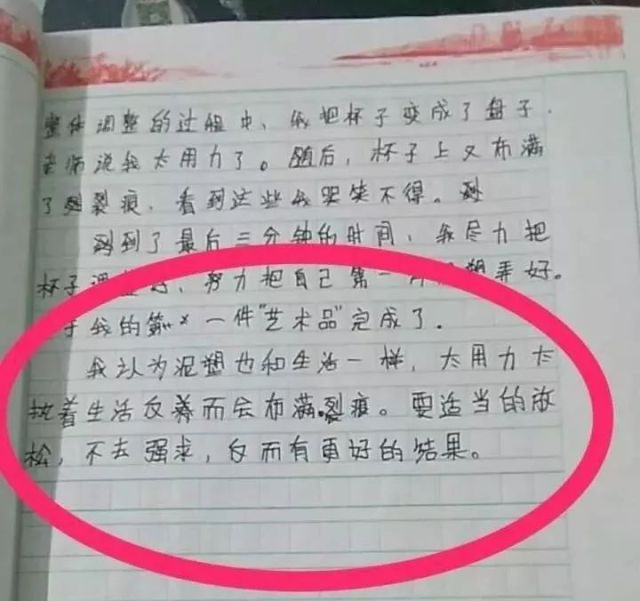 整体调整的过程中,我把杯子变成了盘子.
老师说我太用力了。随后,杯子上又布满
了裂痕,看到这些我哭笑不得。
到了最后三分钟的时间,我尽力把
杯子调整好、努力把自己第一 塑弄好。
于我的第一件"艺术品"完成了.
我认为泥塑也和生活一样,太用力太
执着生活反而会布满裂痕。要适当的放
松,不去强求,反而有更好的结果。